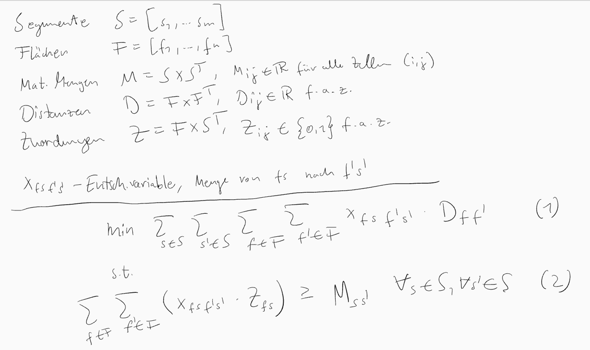 Segmente S = [s1, ... sm]
Flächen F = [f1, ..., fn]
Mat. Mengen M = S x S^T, Mij ∈ ℝ für alle Zellen (i,j)
Distanzen D = F x F^T, Dij ∈ ℝ f. a. z.
Zuordnungen Z = F x S^T, Zij ∈ {0,1} f. a. z.
x_fsf's' - Entsch.variable, Menge von fs nach f's'
min Σ_{s∈S} Σ_{s'∈S} Σ_{f∈F} Σ_{f'∈F} x_{fsf's'} · D_{ff'} (1)
s.t.
Σ_{f∈F} Σ_{f'∈F} (x_{fsf's'} · Z_{fs}) ≥ M_{ss'} ∀s∈S, ∀s'∈S (2)